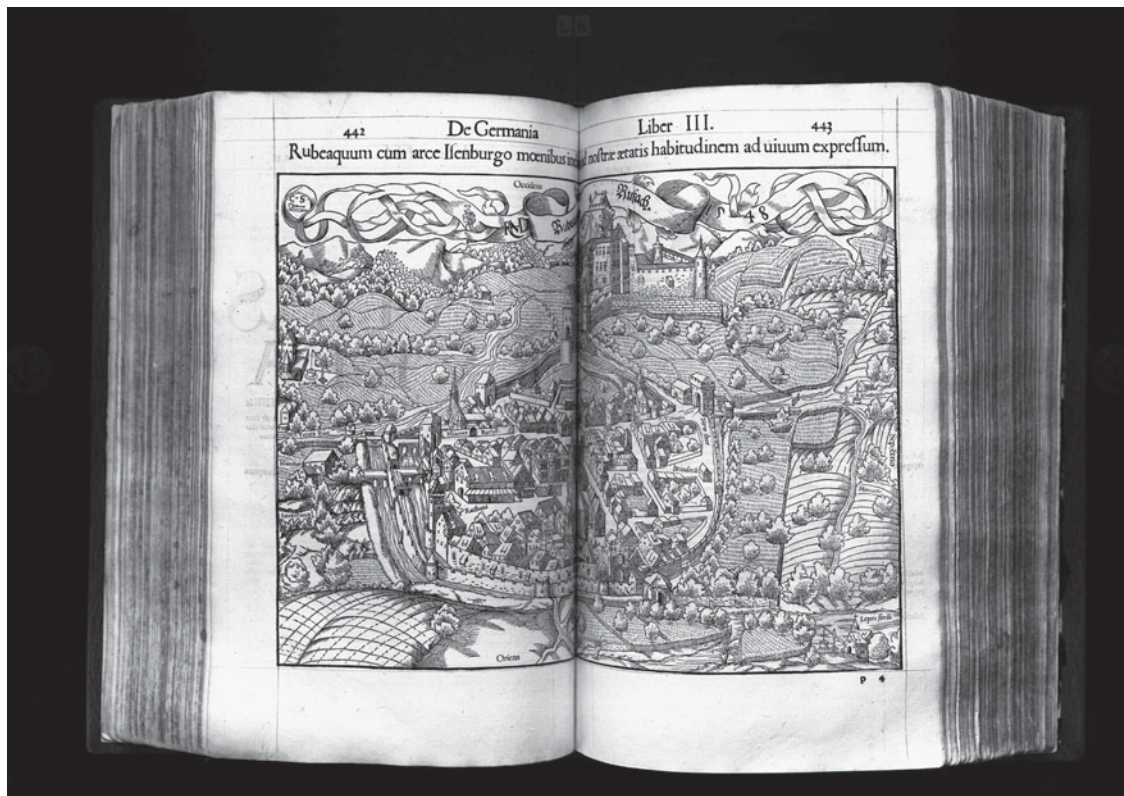 442
De Germania
Liber III.
443
Rubeaquum cum arce Iſenburgo mœnibus
noſtræ ætatis habitudinem ad uiuum expreſſum.
Occidens
Rufach.
1548
HRMD
Oriens
p 4